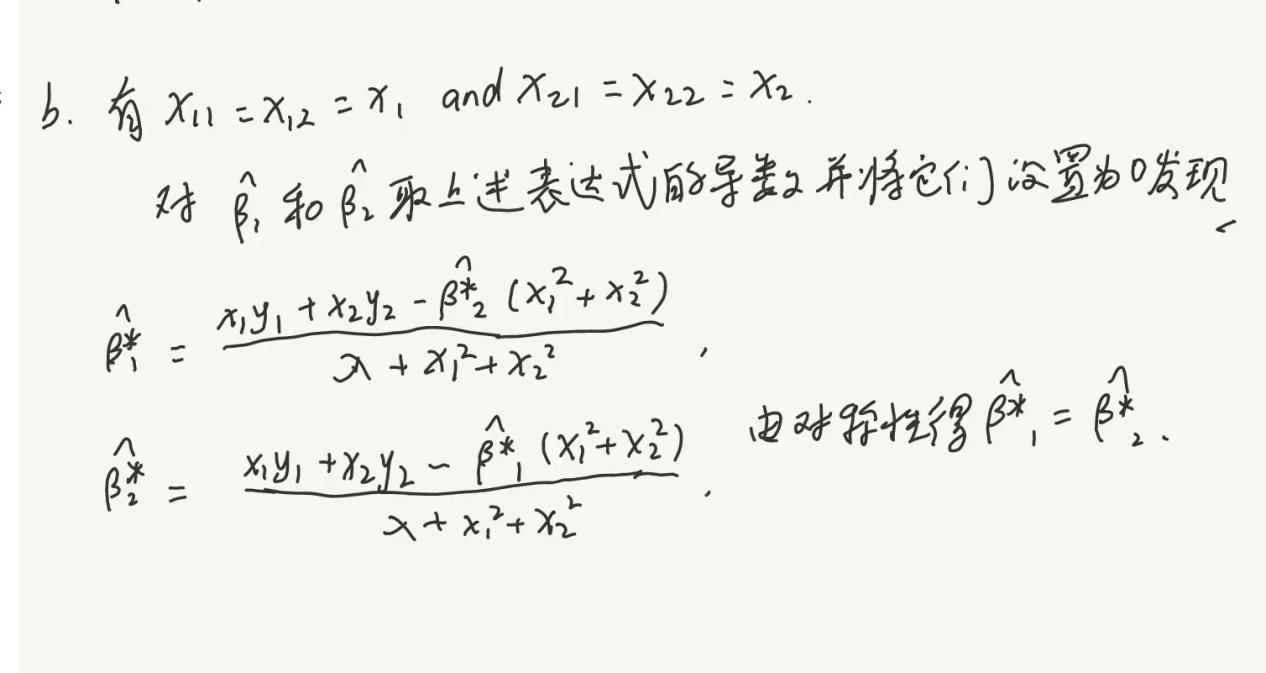 b. 有 x₁₁ = x₁₂ = x₁ and x₂₁ = x₂₂ = x₂.
对 β̂₁ 和 β̂₂ 取上述表达式的导数并将它们设置为0发现
β̂*₁ = (x₁y₁ + x₂y₂ - β̂*₂ (x₁² + x₂²)) / (λ + x₁² + x₂²),
β̂*₂ = (x₁y₁ + x₂y₂ - β̂*₁ (x₁² + x₂²)) / (λ + x₁² + x₂²). 由对称性得 β̂*₁ = β̂*₂.